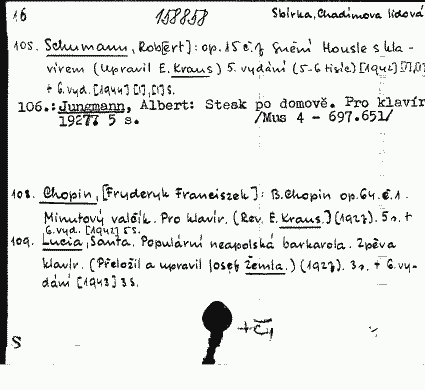 16 158858 Sbírka, Chadimova lidová
105. Schumann, Rob[ert]: op. 15 č. 7 Snění Housle s kla-
vírem (Upravil E. Kraus) 5. vydání (5-6 tisíc) [1942] [1], [1]
+ 6. vyd. [1944] [1], [1] s.
106.: Jungmann, Albert: Stesk po domově. Pro klavír
1927? 5 s. /Mus 4 - 697.651/
108. Chopin, [Fryderyk Franciszek]: B. Chopin op. 64. č. 1.
Minutový valčík. Pro klavír. (Rev. E. Kraus.) (1927). 5 s. +
6. vyd. [1942] 5 s.
109. Lucia, Santa. Populární neapolská barkarola. Zpěv a
klavír. (Přeložil a upravil Josef Žemla.) (1927). 3 s. + 6. vy-
dání [1943] 3 s.
+ Č1
S